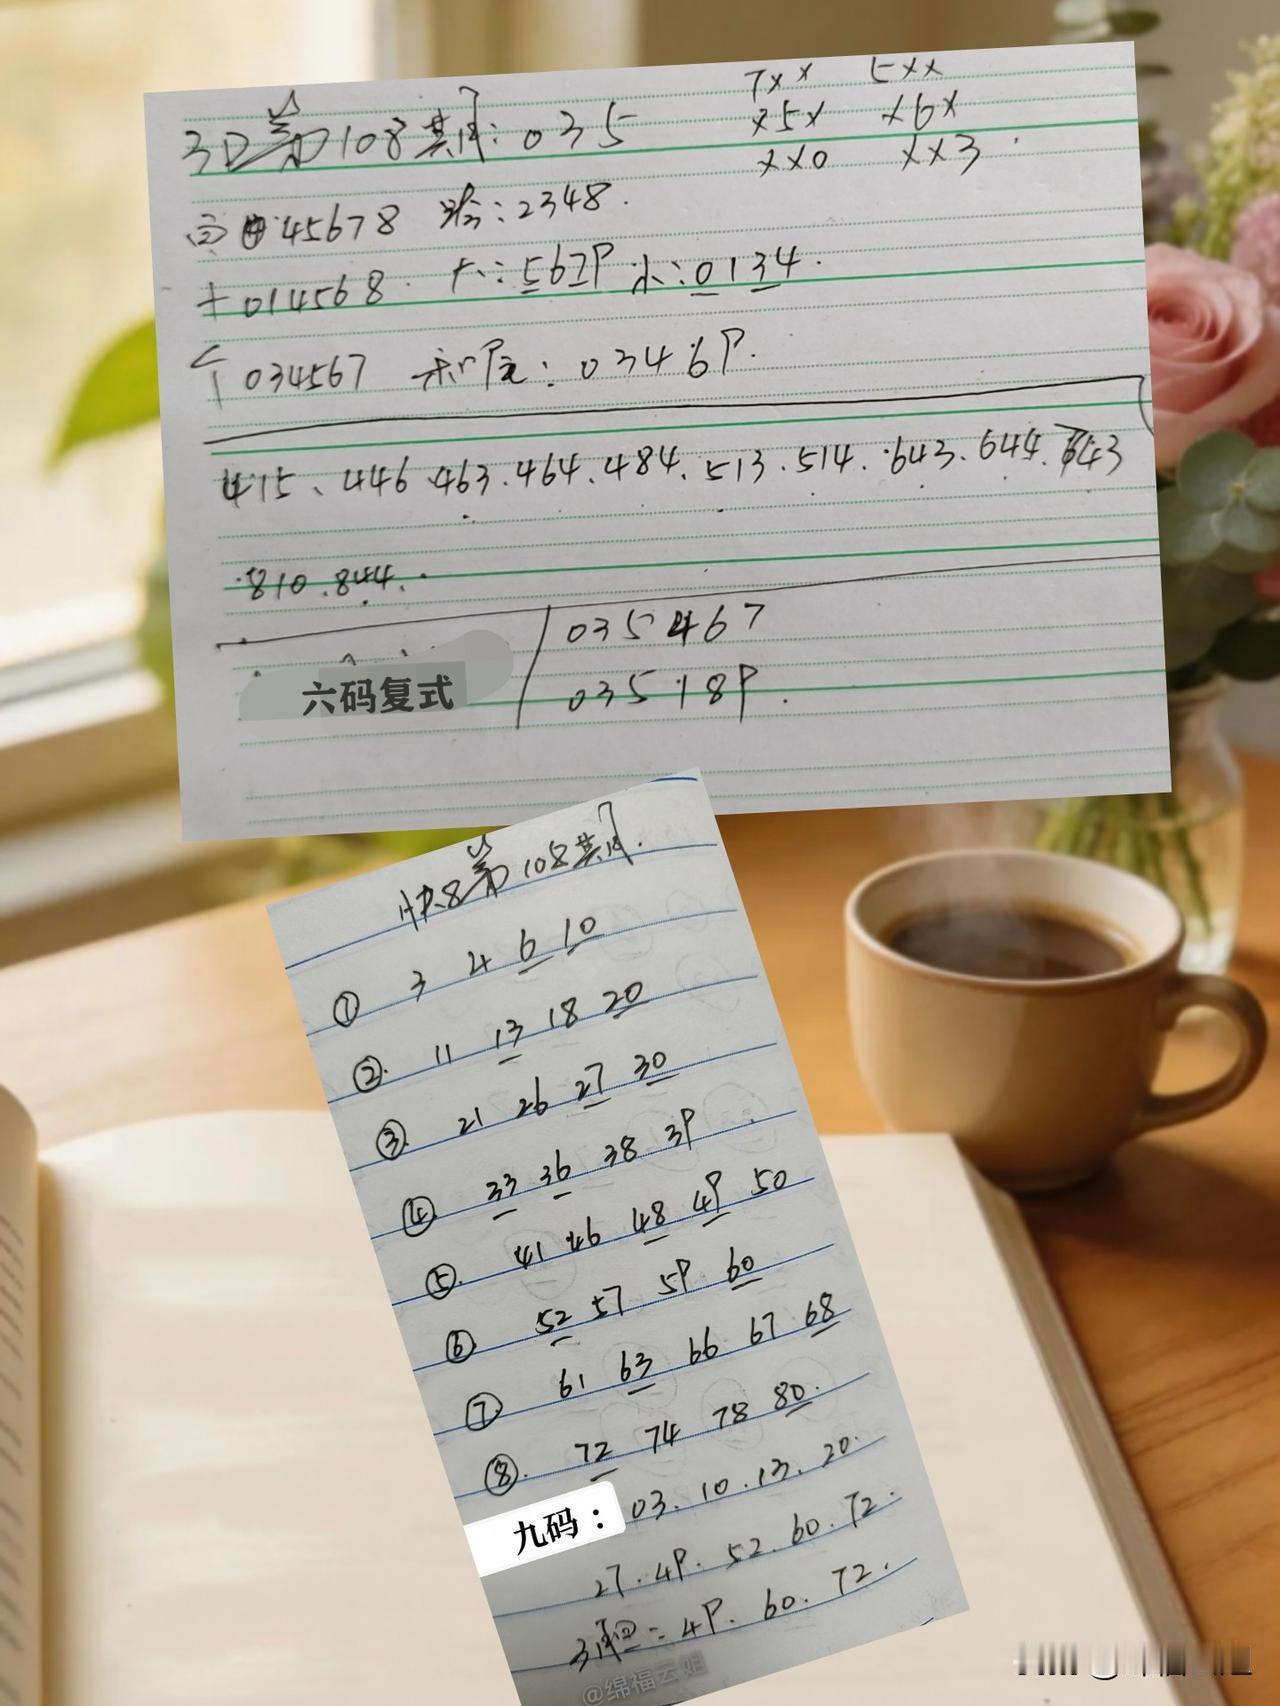 3D第108期:035
7×× 5××
×5× ×6×
××0 ××3
百 45678 跨:2348.
十 014568. 大:5679 小:0134.
个 034567 和尾:03469.
415、446.463.464.484.513.514.643.644.743
.810.844.
六码复式
035467
035189.
快8第108期.
① 3 4 6 10
②. 11 13 18 20
③. 21 26 27 30
④. 33 36 38 39
⑤. 41 46 48 49 50
⑥ 52 57 59 60
⑦ 61 63 66 67 68
⑧. 72 74 78 80.
九码: 03.10.13.20.
27.49.52.60.72.
3胆:49.60.72.
@绵福云姐